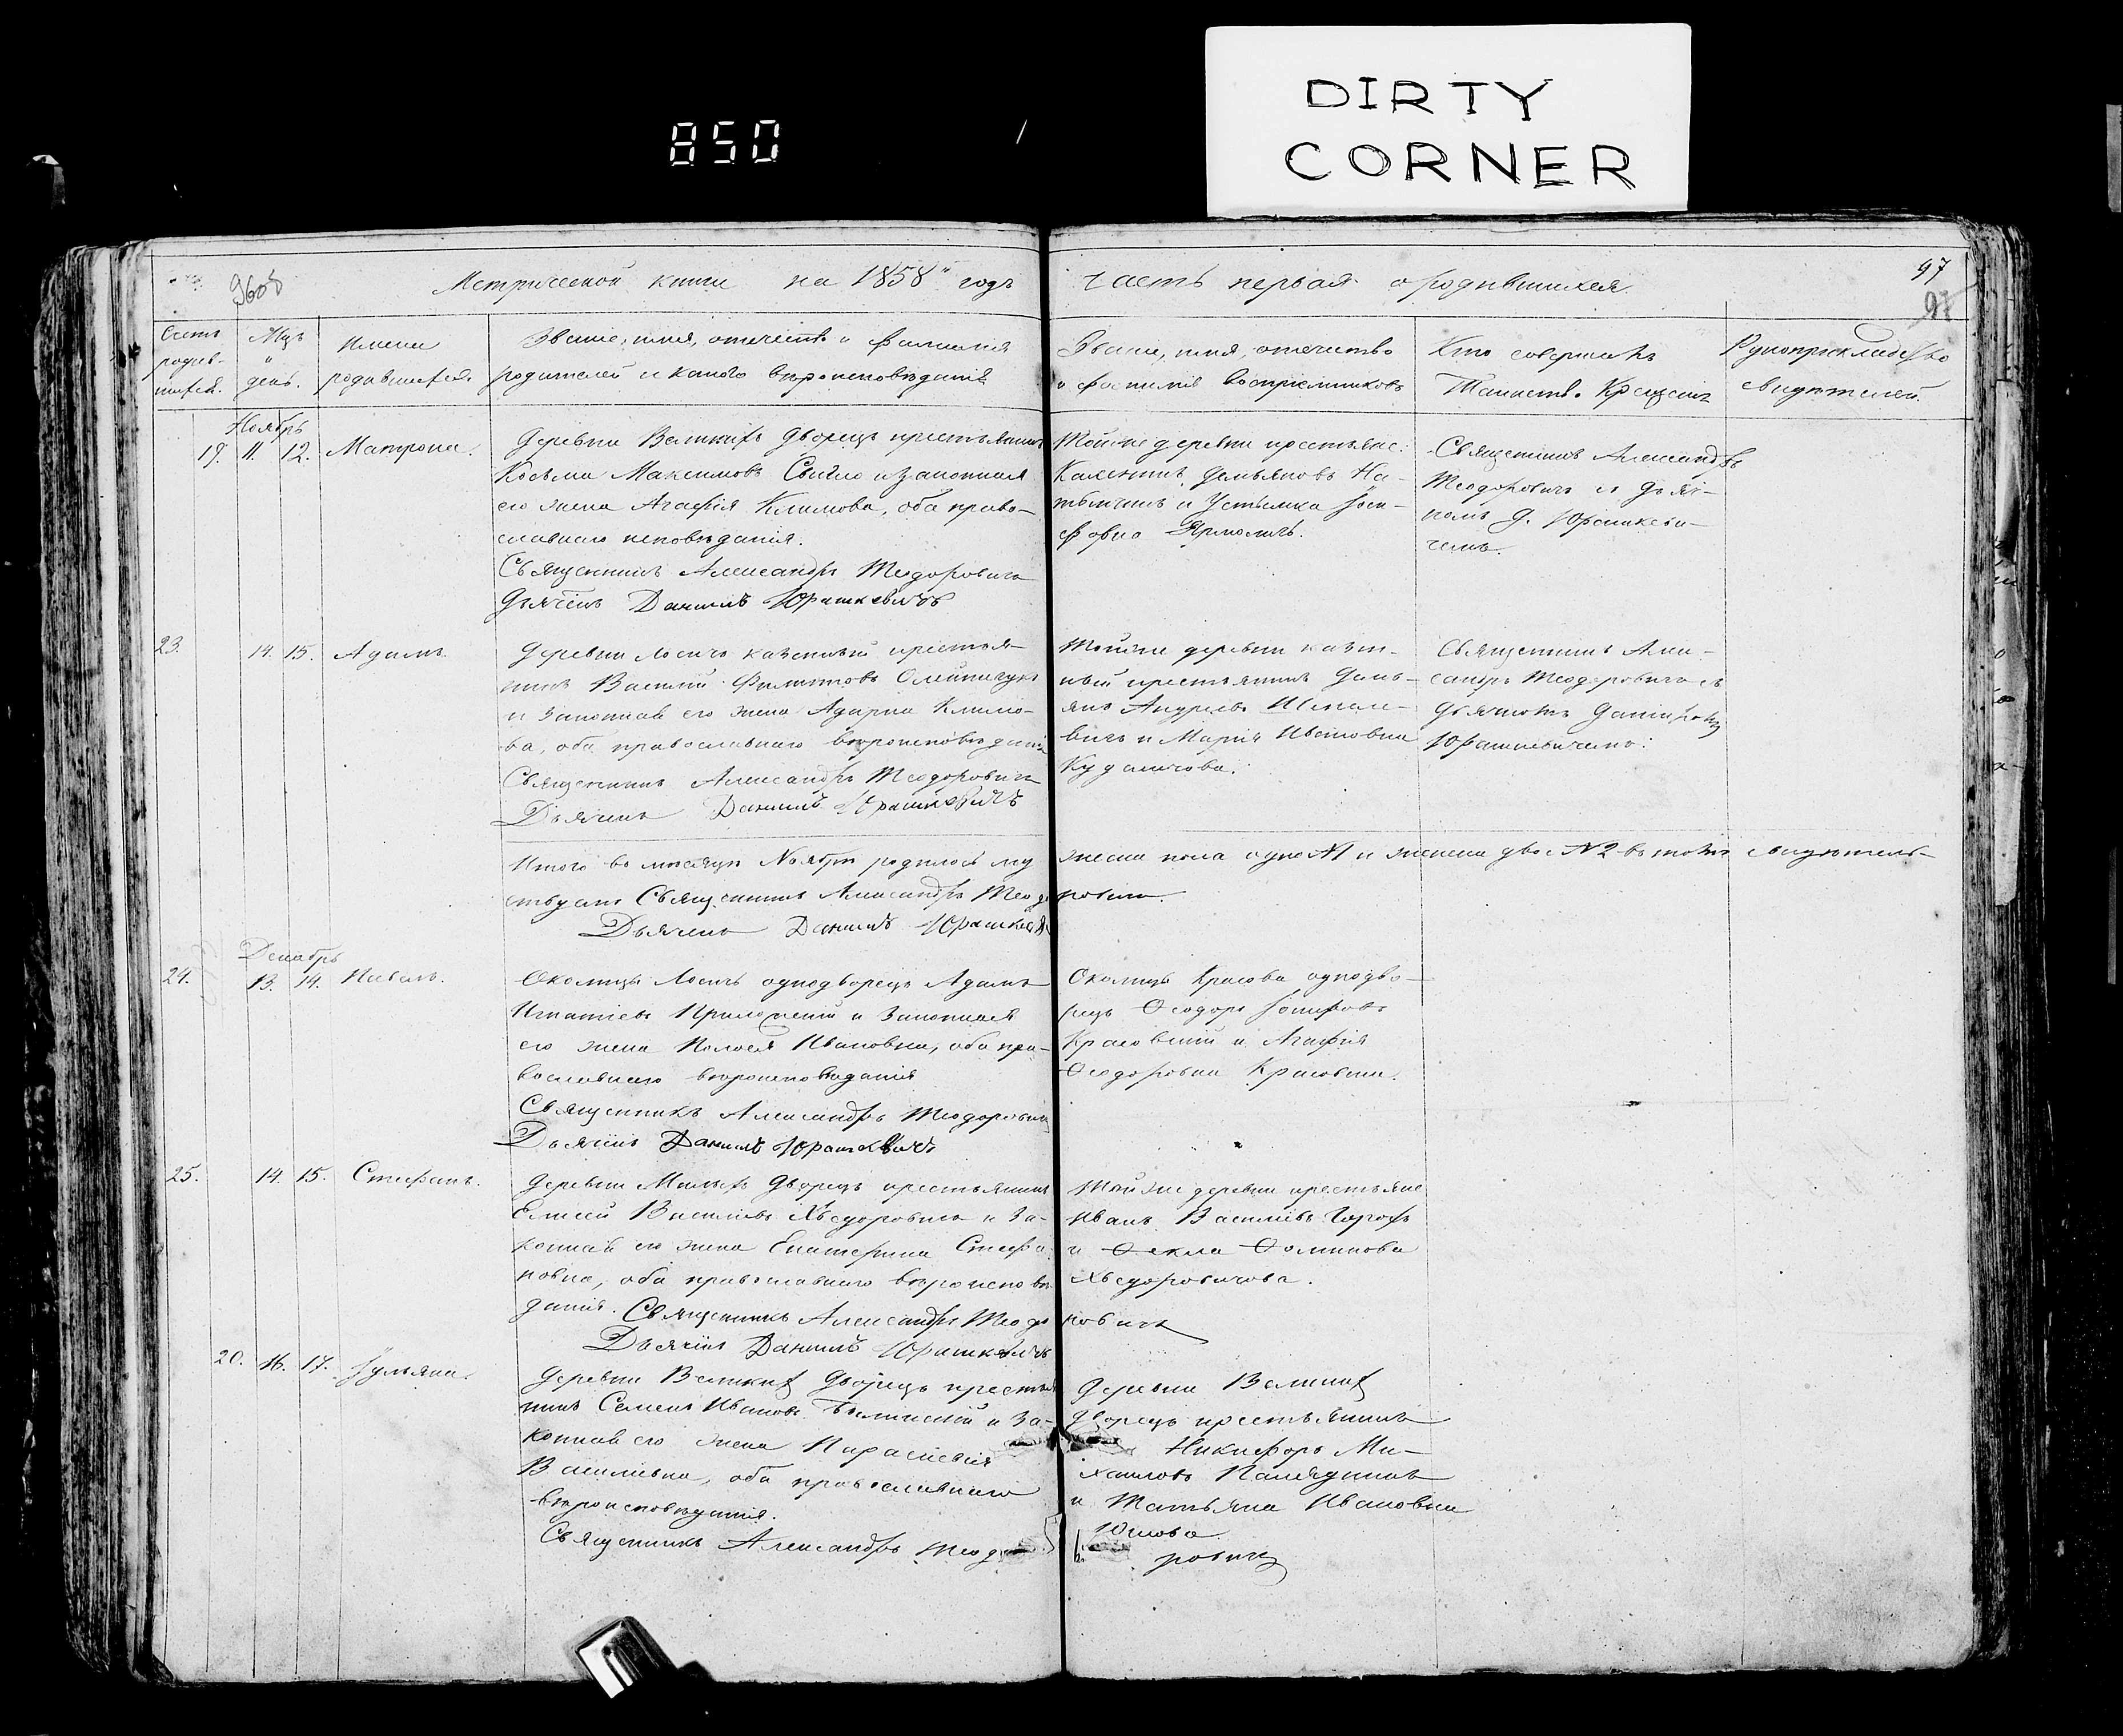 DIRTY
CORNER
850
960б
97
97
Метрической книги на 1858й годъ часть первая о родившихся
Счетъ родив-шихся.
Мцъ и день.
Имена родившихся.
Званіе, имя, отечество и фамилія
родителей и какого вѣроисповѣданія
Званіе, имя, отечество
и фамилія воспріемниковъ
Кто совершалъ
Таинство Крещенія
Рукоприкладство
свидѣтелей.
Ноябрь
19. 11. 12. Матрона.
Деревни Великихъ Дворецъ крестьянинъ
Косьма Максимовъ и законная
его жена Агафія Климова, оба право-
славнаго исповѣданія.
Священникъ Александръ Теодоровичъ
Дьячекъ Даніилъ Юрашкевичъ
Тойже деревни крестьяне:
Демьяновъ На-
и Устинья Іоси-
фовна Ярмоличъ.
Священникъ Александръ
Теодоровичъ съ дьяч-
комъ Д. Юрашкеви-
чемъ.
23. 14. 15. Адамъ.
Деревни Лосичъ казенный крестья-
нинъ Василій Филиповъ Олейничукъ
и законная его жена Адарка Климо-
ва, оба православнаго вѣроисповѣданія
Священникъ Александръ Теодоровичъ
Дьячекъ Даніилъ Юрашкевичъ
Тойже деревни казен-
ный крестьянинъ Демь-
янъ Андреевъ
вичъ и Марія Ивановна
Священникъ Алек-
сандръ Теодоровичъ съ
Дьячкомъ Даніиломъ
Юрашкевичемъ:
Итого въ мѣсяцѣ Ноябрѣ родилось му
жеска пола одно №1 и женска двое №2 въ томъ свидѣтель-
ствуемъ Священникъ Александръ Теодо
ровичъ.
Дьячекъ Даніилъ Юрашкевичъ
Декабрь
24. 13. 14. Павелъ.
Околицы Лосичъ однодворецъ Адамъ
Игнатіевъ и законная
его жена Пелагея Ивановна, оба пра-
вославнаго вѣроисповѣданія
Священникъ Александръ Теодоровичъ
Дьячекъ Даніилъ Юрашкевичъ
Околицы Красова однодво-
рецъ Ѳеодоръ Іосифовъ
Красовскій и Агафія
Ѳеодоровна Красовска.
25. 14. 15. Стефанъ.
Деревни Малыхъ Дворецъ крестьянинъ
Елисей Васильевъ Хведоровичъ и за-
конная его жена Екатерина Стефа-
новна, оба православнаго вѣроисповѣ
данія. Священникъ Александръ Теодо
ровичъ
Дьячекъ Даніилъ Юрашкевичъ
Тойже деревни крестьяне
Иванъ Васильевъ
и Ѳекла Ѳоминова
Хведоровичова.
20. 16. 17. Іульяна.
Деревни Великихъ Дворецъ крестья
нинъ Семенъ Ивановъ и за-
конная его жена Параскевія
Васильевна, оба православнаго
вѣроисповѣданія.
Священникъ Александръ Теодо
ровичъ
Деревни Великихъ
дворецъ крестьянинъ
Никифоръ Ми-
хаиловъ
и Татьяна Ивановна